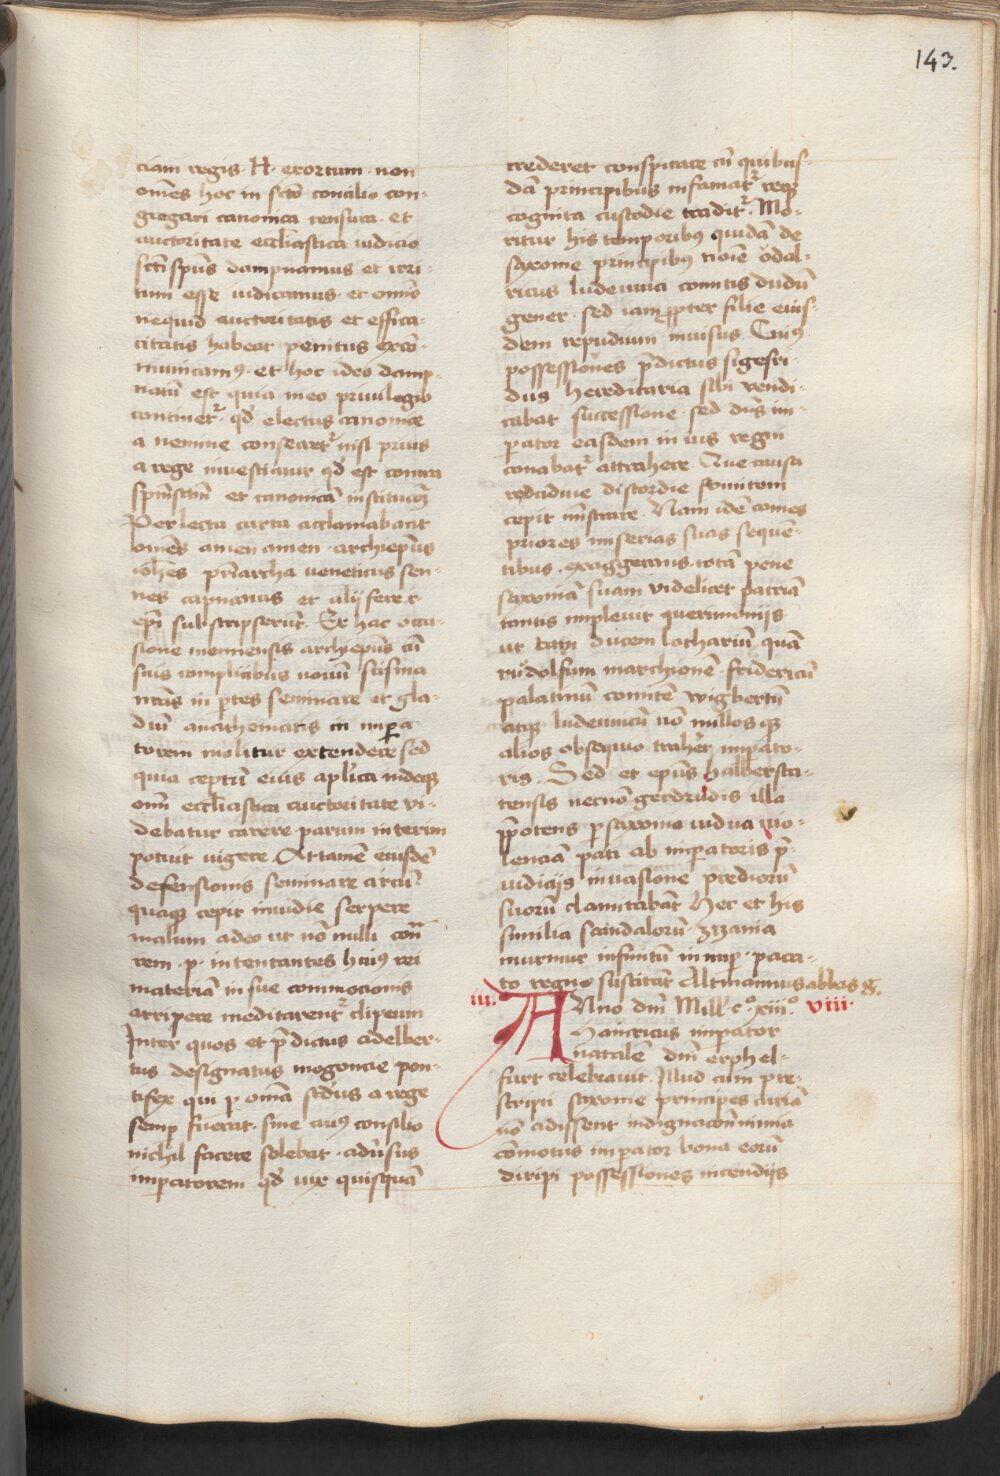 143.
ciam regis · H · exortum · non
om̄es hoc in scō concilio con-
gregati canonica censura · et
auctoritate eccl̄iastica iudicio
sctī sp̄us dampnamus et irri-
tum esse iudicamus · et omīno
nequid auctoritatis et effica-
citatis habeat penitus exco-
municamꝰ · et hoc ideo damp-
natū est quia in eo priuilegio
continet᷑ · qd̄ electus canonice
a nemine consecret᷑ nisi prius
a rege inuestiatur qd̄ est contra
sp̄m sctm̄ et canonicā instituc̄oꝫ
Perlecta carta acclamabant
om̄es amen amen · archiep̄us
ioh̄es pr̄iarcha ueneticus sen-
nes capuanus et alij fere · r ·
ep̄i subscripserūt · Ex hac occa-
sione mennensis archyep̄us cū
suis complicibus nouū scisma
rur̄us in ꝑtes seminare et gla-
diū anathematis in imꝑa-
torem molitur extendere sed
quia ceptū eius apl̄ica indeqꝫ
omī eccl̄iastica auctoritate vi-
debatur carere · parum interim
potuit uigere · Attamē eiusdē
defensionis seminare circū-
quaqꝫ cepit inuidie serpere
malum adeo ut nō nulli
rem · p · intentantes huiꝰ rei
materiā in sue commocionis
arripere meditarent᷑ clipeum
Inter quos et p̄dictus adelber-
tus designatus mogoncie pon-
tifex qui ꝑ omīa scd̄us a rege
semꝑ fuerat · sine cuiꝰ consilio
nichil facere solebat · aduīsus
imperatorem qd̄ uix quisquā
crederet conspirare cū quibus-
dā principibus infamat᷑ reqꝫ
cognita custodie tradit᷑ · Mo-
ritur his temporibꝰ quidā de
saxonie principibꝰ noīe ǒdal-
ricus ludewici comitis dudū
gener · sed iam ꝓpter filie eius-
dem repudium inuisus · Cuiꝰ
possessiones p̄dictus sigefri-
dus hereditaria sibi uendi-
cabat successione · sed dn̄s im-
ꝑator easdem in ius regni
conabat᷑ attrahere · Que causa
rediduie discordie fomitem
cepit mīstrare · Nam idē comes
priores miserias suas sequē-
tibus · exaggerans · totā pene
saxoniā suam videlicet patriā
tantis impleuit querimonijs
ut tam ducem lothariū quā
růdolfum marchionē · fridericū
palatinū comitē wigbertū
atqꝫ ludewicū nō nullos qꝫ
alios obsequio traher̄et imꝑato-
ris · Sed et ep̄us halbersta-
tensis necnō gerdrudis illa
p̄potens ꝑ saxoniā uidua uio-
lenciā pati ab imꝑatoris p̄-
iudicijs inuasione prediorū
suorū clamitabāt · Hec et his
similia scandalorū · zizania
murmur infinitū in imꝑ · paca-
to regno suscitāt Altmannus abbas g.
iii. Anno dm̄ Mill᷑ · cº · xiiiº · viii ·
Hainricus imꝑator
natalē dm̄ erphel-
furt celebrauit · Illud cum pre-
scripti saxonie principes curiā
nō adissent indignac̄one nimia
cōmotus imꝑator bona eorū
diripi possessiones incendijs